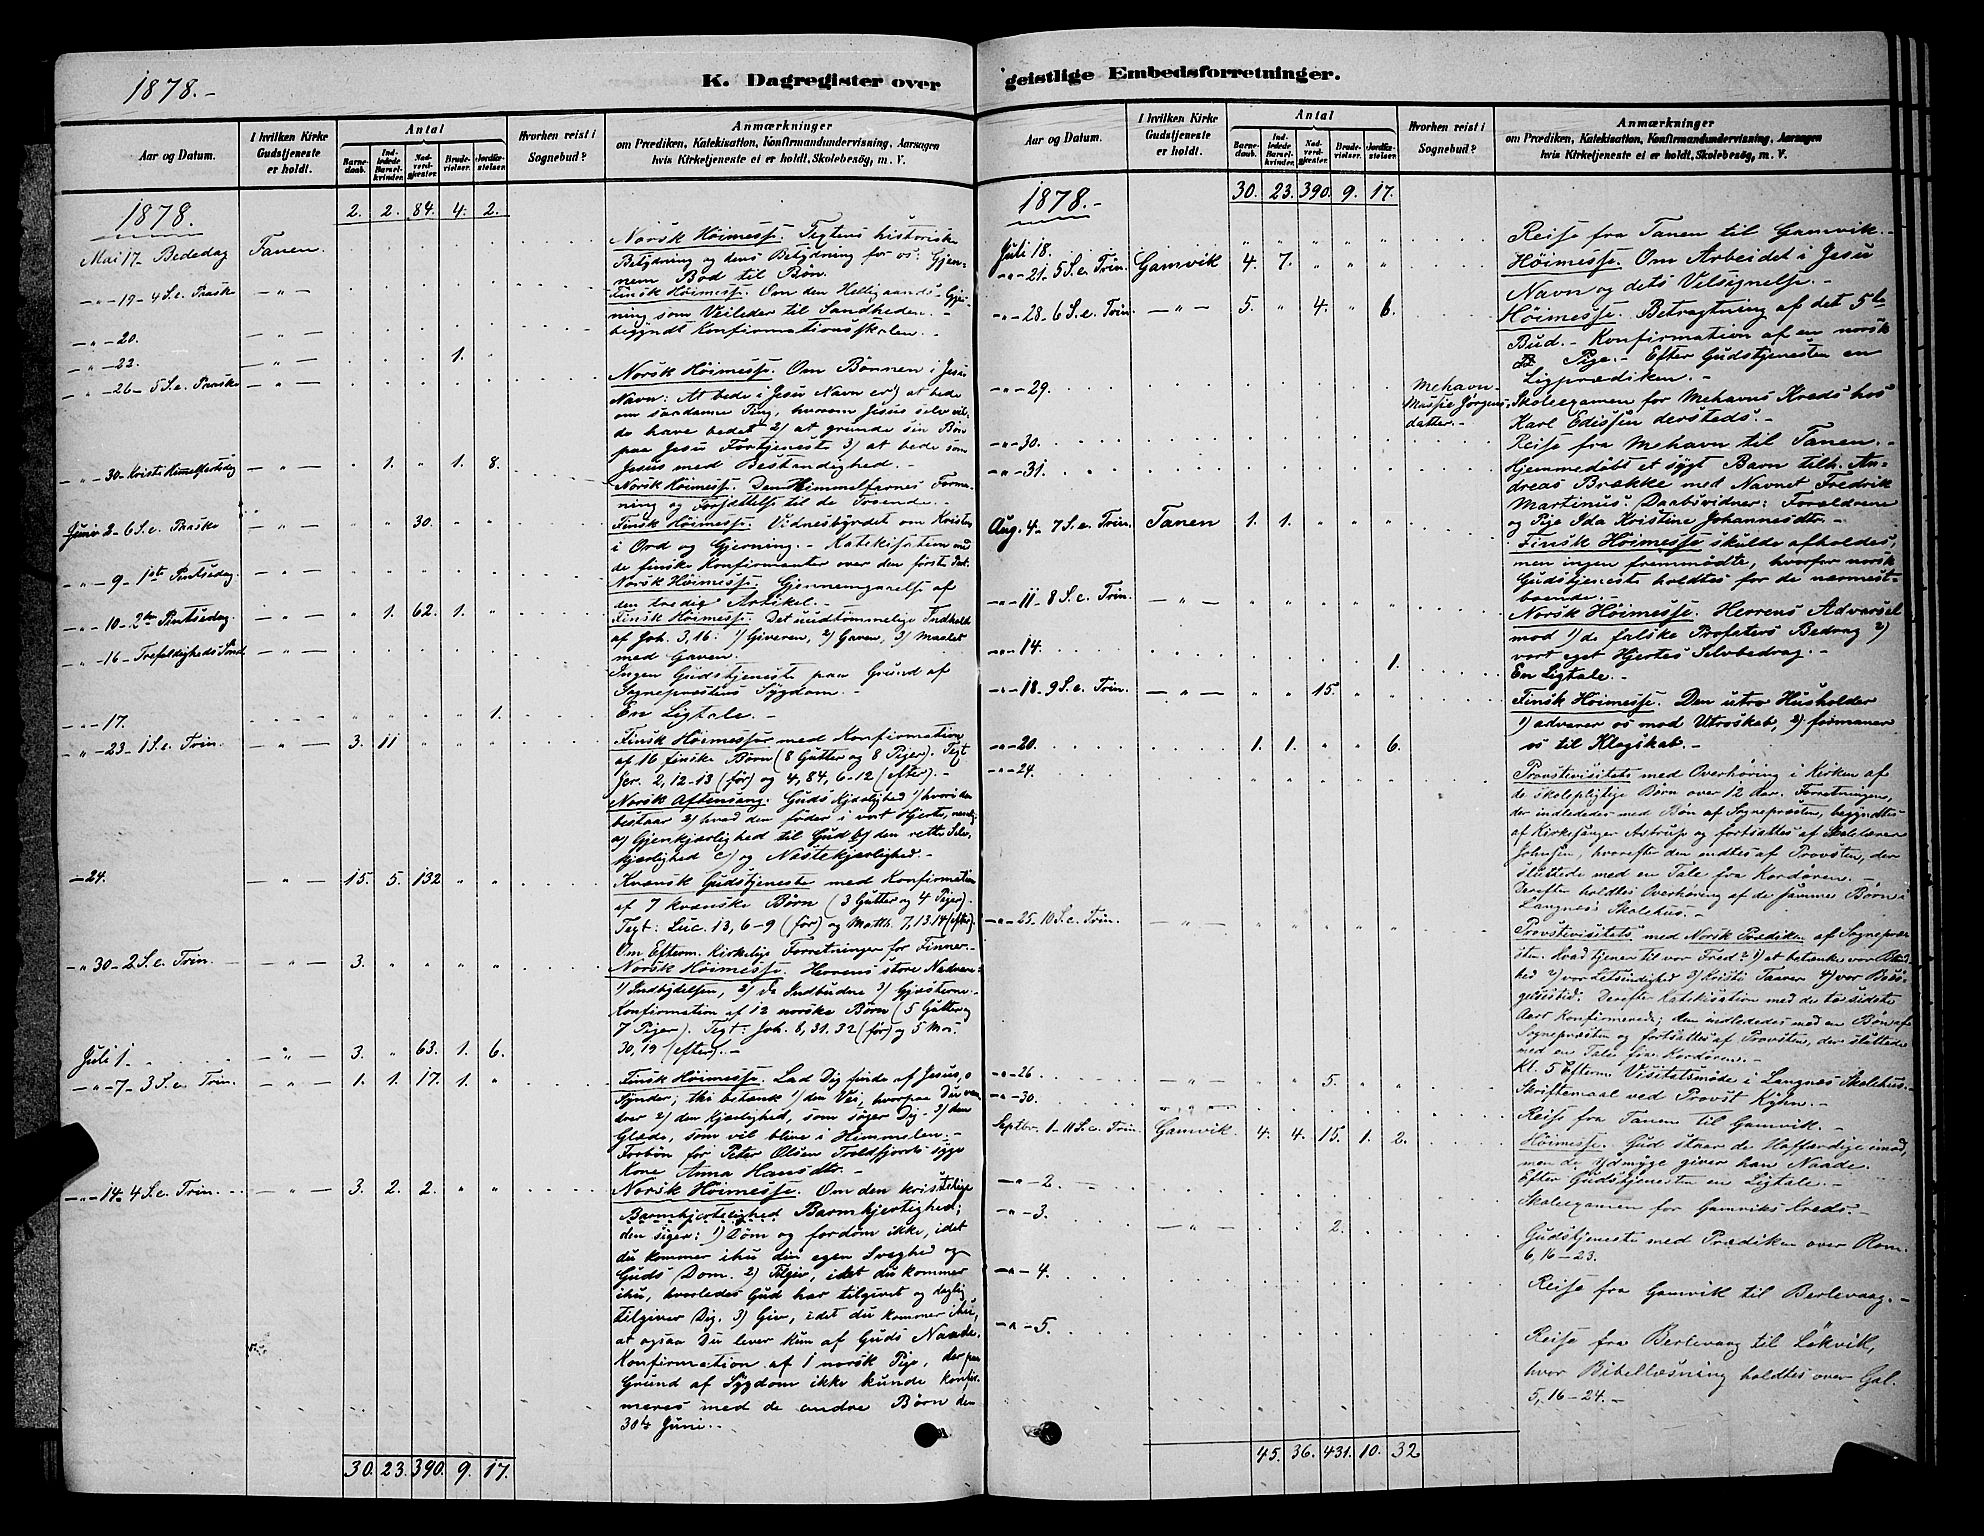 1878.-
K. Dagregister over
Aar og Datum.
I hvilken Kirke
Gudstjeneste
er holdt.
Antal
Barne-
daab.
Ind-
ledede
Barsel-
kvinder.
Nad-
verd-
gjester.
Brude-
vielser.
Jordfæ-
stelser.
Hvorhen reist i
Sognebud?
Anmærkninger
om Prædiken, Katekisation, Konfirmandundervisning, Aarsagen
hvis Kirketjeneste ei er holdt, Skolebesøg, m. V.
1878.
2. 2. 84. 4. 2.
Mai 17- Bededag Tanen.
Norsk Höimesse. Textens historiske
Betydning og dens Betydning for os: Gjen-
nem Bod til Bön.
-"-19-4 S. e. Paaske -"-
Finsk Höimesse. Om den Helligaands Gjer-
ning som Veileder til Sandheden.-
-"-20. -"-
begyndt Konfirmationsskolen.-
-"-22. -"- 1.
-"-26-5 S. e. Paaske -"-
Norsk Höimesse. Om Bönnen i Jesu
Navn: At bede i Jesu Navn er 1) at bede
om saadanne Ting, hvorom Jesus selv vil-
de have bedet 2) at grunde sin Bön
paa Jesu Fortjeneste 3) at bede som
Jesus med Bestandighed.-
-"-30-Kristi Himmelfartsdag -"- " 1. " 1. 8.
Norsk Höimesse. Den Himmelfarnes Forma-
ning og Forjættelse til de Troende.-
Juni 2-6 S. e. Paaske -"- " " 30. " "
Finsk Höimesse. Vidnesbyrdet om Kristus
i Ord og Gjerning.- Katekisation med
de finske Konfirmanter over den förste Part.
-"-9-1ste Pintsedag. -"-
Norsk Höimesse. Gjennemgaaelse af
den tredie Artikel.-
-"-10-2den Pintsedag -"- " 1. 62. 1. "
Finsk Höimesse. Det uudtömmelige Indhold
af Joh. 3,16: 1) Giveren, 2) Gaven, 3) Maalet
med Gaven.
-"-16-Trefoldigheds Sönd. -"-
Ingen Gudstjeneste paa Grund af
Sognepræstens Sygdom.-
-"-17. " " " " 1.
En Ligtale.-
-"-23-1 S. e. Trin. -"- 3. 11 " " "
Finsk Höimesse med Konfirmation
af 16 finske Börn (8 Gutter og 8 Piger). Text
Jer. 2, 12-13 (för) og 4, 84, 6-12 (efter).-
Norsk Aftensang: Guds Kjærlighed 1) hvori den
bestaar 2) hvad den föder i vort Hjerte, nemlig
a) Gjenkjærlighed til Gud b) den rette Selv-
kjærlighed c) og Næstekjærlighed.-
-24. -"- 15. 5. 132 " "
Kvænsk Gudstjeneste med Konfirmation
af 7 kvænske Börn (3 Gutter og 4 Piger).
Text: Luc. 13, 6-9 (för) og Matth. 7, 13.14 (efter).
Om Efterm. Kirkelige Forretninger for Finner.-
-"30-2 S. e. Trin. -"- 3. " " " "
Norsk Höimesse. Herrens store Nadvere:
1) Indbydelsen, 2) De Indbudne 3) Gjæsterne.-
Konfirmation af 12 norske Börn (5 Gutter og
7 Piger). Text: Joh. 8, 31. 32 (för) og 5 Mos.
30, 19 (efter).-
Juli 1. -"- 3. " 63. 1. 6.
-"-7-3 S. e. Trin. -"- 1. 1. 17. 1. "
Finsk Höimesse. Lad Dig finde af Jesus, o
Synder; thi betænk 1) den Vei, hvorpaa Du van-
drer 2) den Kjærlighed, som söger Dig 3) den
Glæde, som vil blive i Himmelen.-
Forbön for Peter Olsen Troldfjords syge
Kone Anna Hansdtr.-
-"-14-4 S. e. Trin. -"- 3. 2. 2. " "
Norsk Höimesse. Om den kristelige
Barmhjertelighed Barmhjertighed;
den siger: 1) Döm og fordöm ikke, idet
du kommer ihu din egen Svaghed og
Guds Dom. 2) Tilgiv, idet du kommer
ihu, hvorledes Gud har tilgivet og daglig
tilgiver Dig. 3) Giv, idet du kommer ihu,
at ogsaa Du lever kun af Guds Naade.
Konfirmation af 1 norsk Pige, der paa
Grund af Sygdom ikke kunde konfir-
meres med de andre Börn den
30te Juni.-
30. 23. 390. 9. 17.
geistlige Embedsforretninger.
Aar og Datum.
I hvilken Kirke
Gudstjeneste
er holdt.
Antal
Barne-
daab.
Ind-
ledede
Barsel-
kvinder.
Nad-
verd-
gjester.
Brude-
vielser.
Jordfæ-
stelser.
Hvorhen reist i
Sognebud?
Anmærkninger
om Prædiken, Katekisation, Konfirmandundervisning, Aarsagen
hvis Kirketjeneste ei er holdt, Skolebesøg, m. V.
1878.-
30. 23. 390. 9. 17.
Juli 18.
Reise fra Tanen til Gamvik.-
-"-21. 5 S. e. Trin. Gamvik 4. 7. " " "
Höimesse. Om Arbeidet i Jesu
Navn og dets Velsignelse.-
-"-28-6 S. e. Trin. -"- 5. " 4. " 6.
Höimesse. Betragtning af det 5te
Bud.- Konfirmation af en norsk
Pige.- Efter Gudstjenesten en
Ligprædiken.-
-"-29. Mehavn-
Massie Jörgens-
datter.-
Skoleexamen for Mehavns Kreds hos
Karl Edissen dersteds.-
-"-30.
Reise fra Mehavn til Tanen.-
-"-31.
Hjemmedöbt et sygt Barn tilh. An-
dreas Brække med Navnet Fredrik
Martinus. Daabsvidner: Forældrene
og Pige Ida Kristine Johannesdtr.-
Aug. 4-7 S. e. Trin. Tanen 1. 1. " " "
Finsk Höimesse skulde afholdes
men ingen fremmödte, hvorfor norsk
Gudstjeneste holdtes for de nærmest-
boende.-
-"-11-8 S. e. Trin. -"-
Norsk Höimesse. Herrens Advarsel
mod 1) de falske Profeters Bedrag 2)
vort eget Hjertes Selvbedrag.-
-"-14. 1.
En Ligtale.-
-"-18-9 S. e. Trin. -"- " " 15. " "
Finsk Höimesse. Den utro Husholder
1) advarer os mod Utroskab, 2) formaner
os til Klogskab.-
-"-20. 1. 1. " " 6.
-"-24.
Provstevisitats med Overhöring i Kirken af
de skolepligtige Börn over 12 Aar. Forretningen,
der indlededes med Bön af Sognepræsten, begyndtes
af Kirkesanger Astrup og fortsattes af Skolelærer
Johnsen, hvorefter den endtes af Provsten, der
sluttede med en Tale fra Kordören.-
Derefter holdtes Overhöring af de samme Börn i
Langnes Skolehus.-
-"-25-10 S. e. Trin. -"-
Provstevisitats med Norsk Prædiken af Sognepræ-
sten. Hvad tjener til vor Fred? 1) at betænke vor Blind-
hed 2) vor Letsindighed 3) Kristi Taarer 4) vor Besö-
gelsestid. Derefter Katekisation med de to sidste
Aars Konfirmerede; den indlededes med en Bön af
Sognepræsten og fortsattes af Provsten, der sluttede
med en Tale fra Kordören.-
Kl. 5 Efterm. Visitatsmöde i Langnes Skolehus.
-"-26 -"- 5. " "
Skriftemaal ved Provst Kyhn.-
-"-30.
Reise fra Tanen til Gamvik.-
Septbr. 1-11 S. e. Trin. Gamvik. 4. 4. 15. 1. 2.
Höimesse. Gud staar de Hoffærdige imod,
men de Ydmyge giver han Naade.
Efter Gudstjenesten en Ligtale.-
-"-2.
Skoleexamen for Gamviks Kreds.-
-"-3. -"- 2.
Gudstjeneste med Prædiken over Rom.
6, 16-23.
-"-4.
Reise fra Gamvik til Berlevaag.-
-"-5.
Reise fra Berlevaag til Lökvik,
hvor Bibellæsning holdtes over Gal.
5, 16-24.-
45. 36. 431. 10. 32